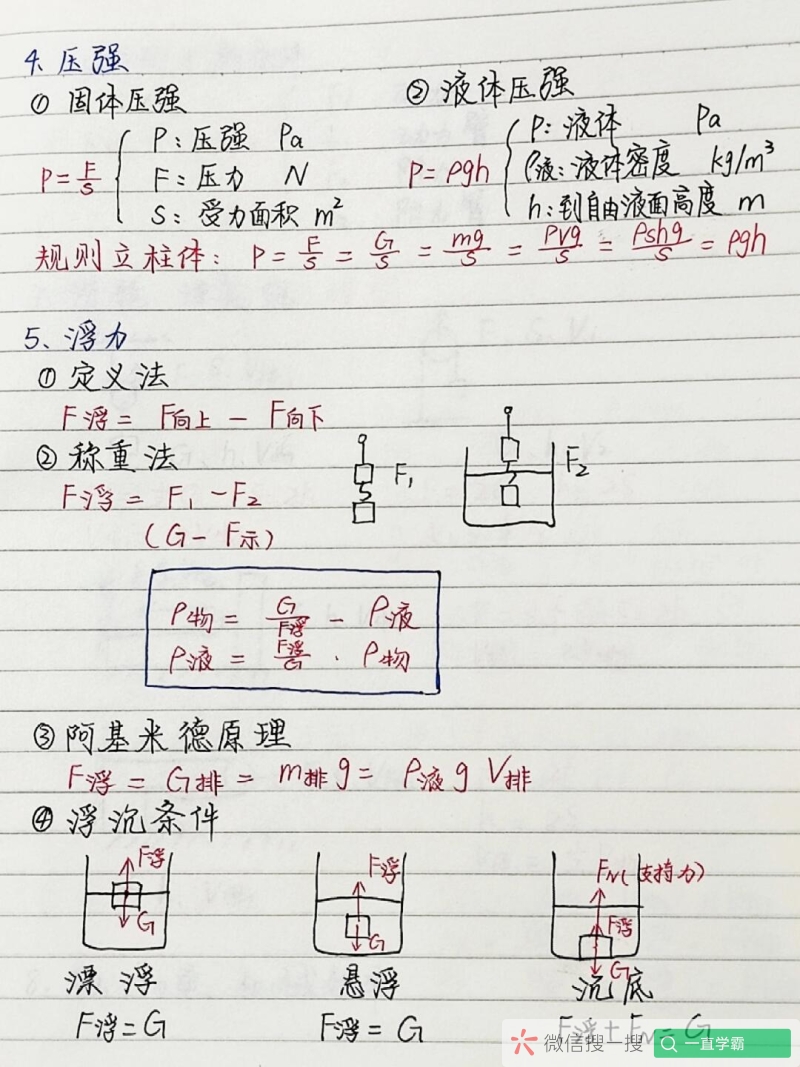 4. 压强
① 固体压强
P = F/S
P: 压强 Pa
F: 压力 N
S: 受力面积 m²
② 液体压强
P = ρgh
P: 液体 Pa
ρ液: 液体密度 kg/m³
h: 到自由液面高度 m
规则立柱体: P = F/S = G/S = mg/S = ρvg/S = ρshg/S = ρgh
5、浮力
① 定义法
F浮 = F向上 - F向下
② 称重法
F浮 = F₁ - F₂
(G - F示)
F₁
F₂
ρ物 = G/F浮 - ρ液
ρ液 = F浮/G · ρ物
③ 阿基米德原理
F浮 = G排 = m排 g = ρ液 g V排
④ 浮沉条件
F浮
G
漂浮
F浮 = G
F浮
G
悬浮
F浮 = G
FN(支持力)
F浮
G
沉底
F浮 + FN = G
微信搜一搜
一直学霸